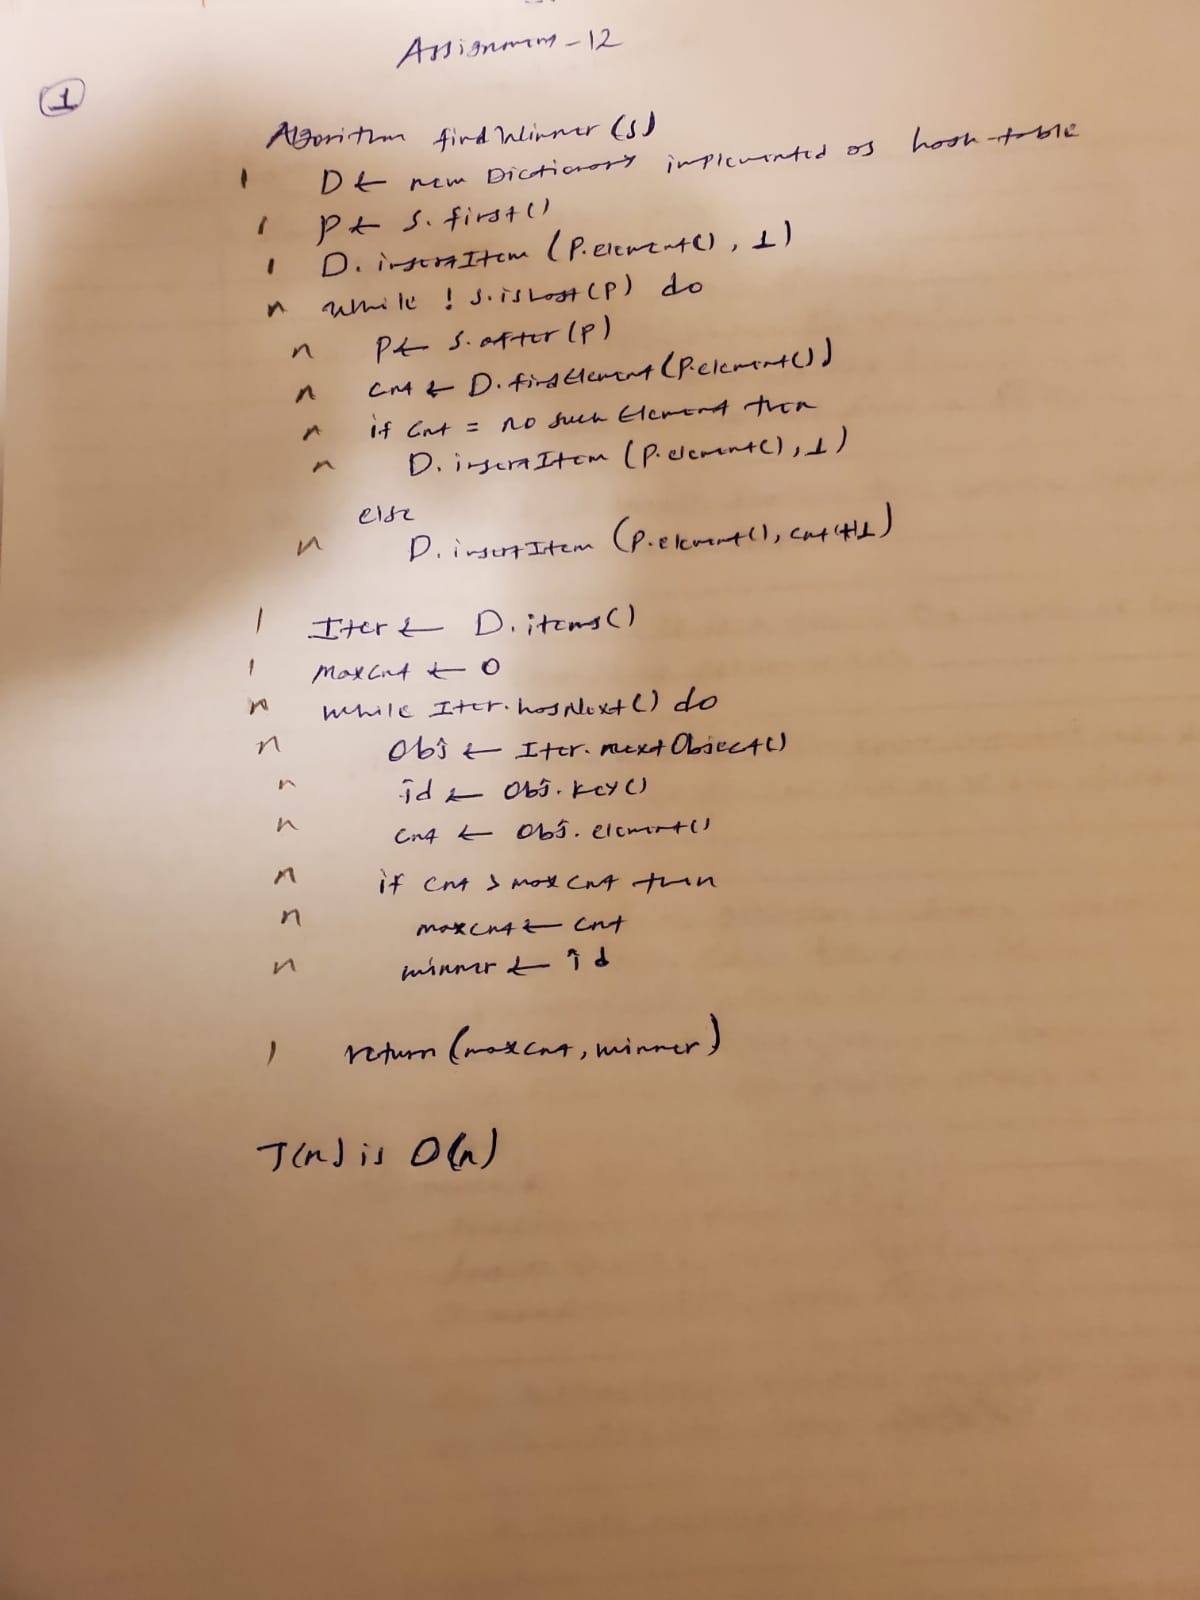 Assignment - 12
1
Algorithm findWinner (S)
1 D ← new Dictionary implemented as hash-table
1 P ← S.first()
1 D.insertItem (P.element(), 1)
n while ! S.isLast(P) do
n P ← S.after(P)
n Cnt ← D.findElement(P.element())
n if Cnt = no such Element then
n D.insertItem (P.element(), 1)
else
n D.insertItem (P.element(), Cnt+1)
1 Iter ← D.items()
1 maxCnt ← 0
n while Iter.hasNext() do
n Obj ← Iter.nextObject()
n id ← Obj.key()
n Cnt ← Obj.element()
n if Cnt > maxCnt then
n maxCnt ← Cnt
n winner ← id
1 return (maxCnt, winner)
T(n) is O(n)